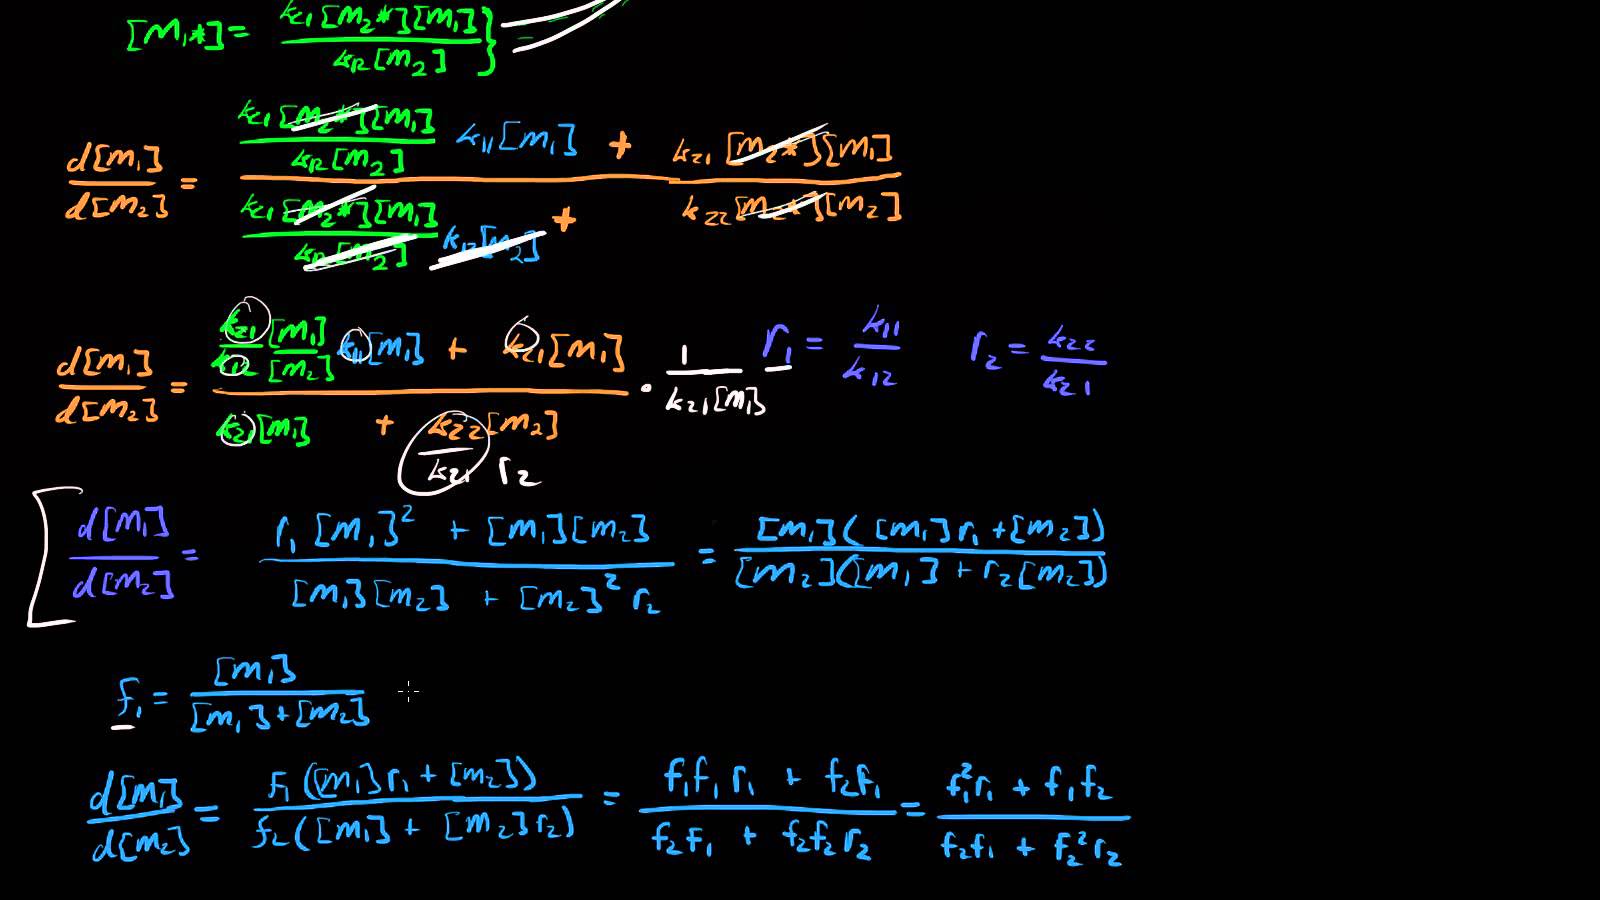 [M₁*] = k₂₁[M₂*][M₁] / k₁₂[M₂]
d[M₁] / d[M₂] = (k₂₁[M₂*][M₁] / k₁₂[M₂] k₁₁[M₁] + k₂₁[M₂*][M₁]) / (k₂₁[M₂*][M₁] / k₁₂[M₂] k₁₂[M₂] + k₂₂[M₂*][M₂])
d[M₁] / d[M₂] = (k₂₁[M₁] / k₁₂[M₂] k₁₁[M₁] + k₂₁[M₁]) / (k₂₁[M₁] + k₂₂[M₂] / k₂₁ r₂) · 1 / k₂₁[M₁] r₁ = k₁₁ / k₁₂ r₂ = k₂₂ / k₂₁
d[M₁] / d[M₂] = (r₁[M₁]² + [M₁][M₂]) / ([M₁][M₂] + [M₂]² r₂) = [M₁]([M₁]r₁ + [M₂]) / [M₂]([M₁] + r₂[M₂])
f₁ = [M₁] / [M₁] + [M₂]
d[M₁] / d[M₂] = f₁([M₁]r₁ + [M₂]) / f₂([M₁] + [M₂]r₂) = (f₁f₁r₁ + f₂f₁) / (f₂f₁ + f₂f₂r₂) = (f₁²r₁ + f₁f₂) / (f₂f₁ + f₂²r₂)